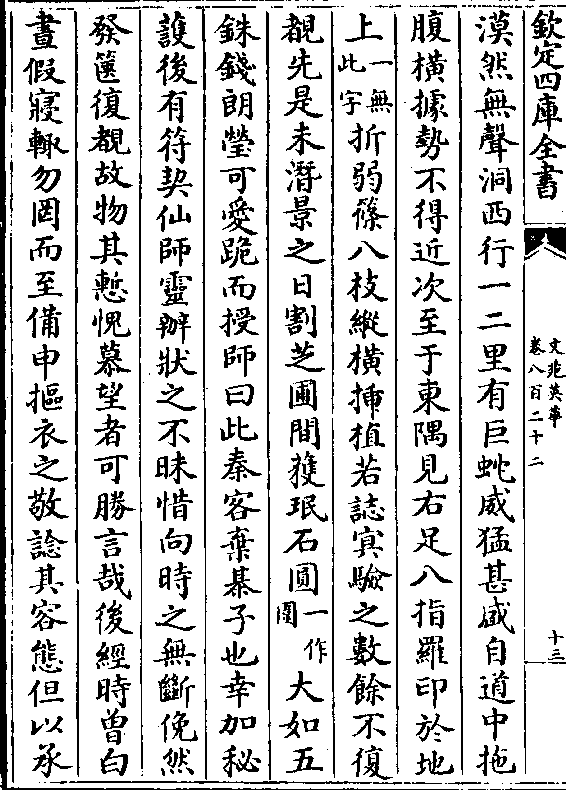 欽定四庫全書
文苑英華
卷八百二十二
十三
漠然無聲洞西行一二里有巨蛇威猛甚盛自道中拖
腹橫據勢不得近次至于東隅見右足八指羅印於地
上一無此字折弱篠八枝縱橫挿植若誌㝠驗之數餘不復
覩先是未潛景之日割芝圃間獲珉石圓一作圍大如五
銖錢朗瑩可愛跪而授師曰此秦客棄棊子也幸加秘
䕶後有符契仙師靈辦狀之不昧惜向時之無斷俛然
發篋復覩故物其慙愧慕望者可勝言哉後經時曽白
晝假寢輙勿罔而至備申摳衣之敬諗其容態但以承